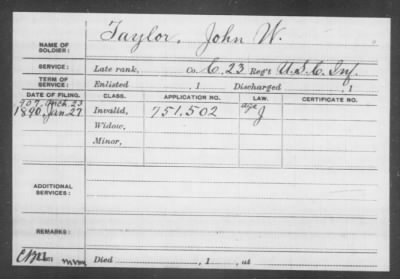 NAME OF SOLDIER: Taylor, John W.
SERVICE: Late rank, Co. C, 23 Reg't U.S.C. Inf.
TERM OF SERVICE: Enlisted , 1 Discharged , 1
DATE OF FILING. CLASS. APPLICATION NO. LAW. CERTIFICATE NO.
907, Mch. 23 age
1890, Jan 27 Invalid, 751.502 J
Widow,
Minor,
ADDITIONAL SERVICES:
REMARKS:
Died , 1 , at